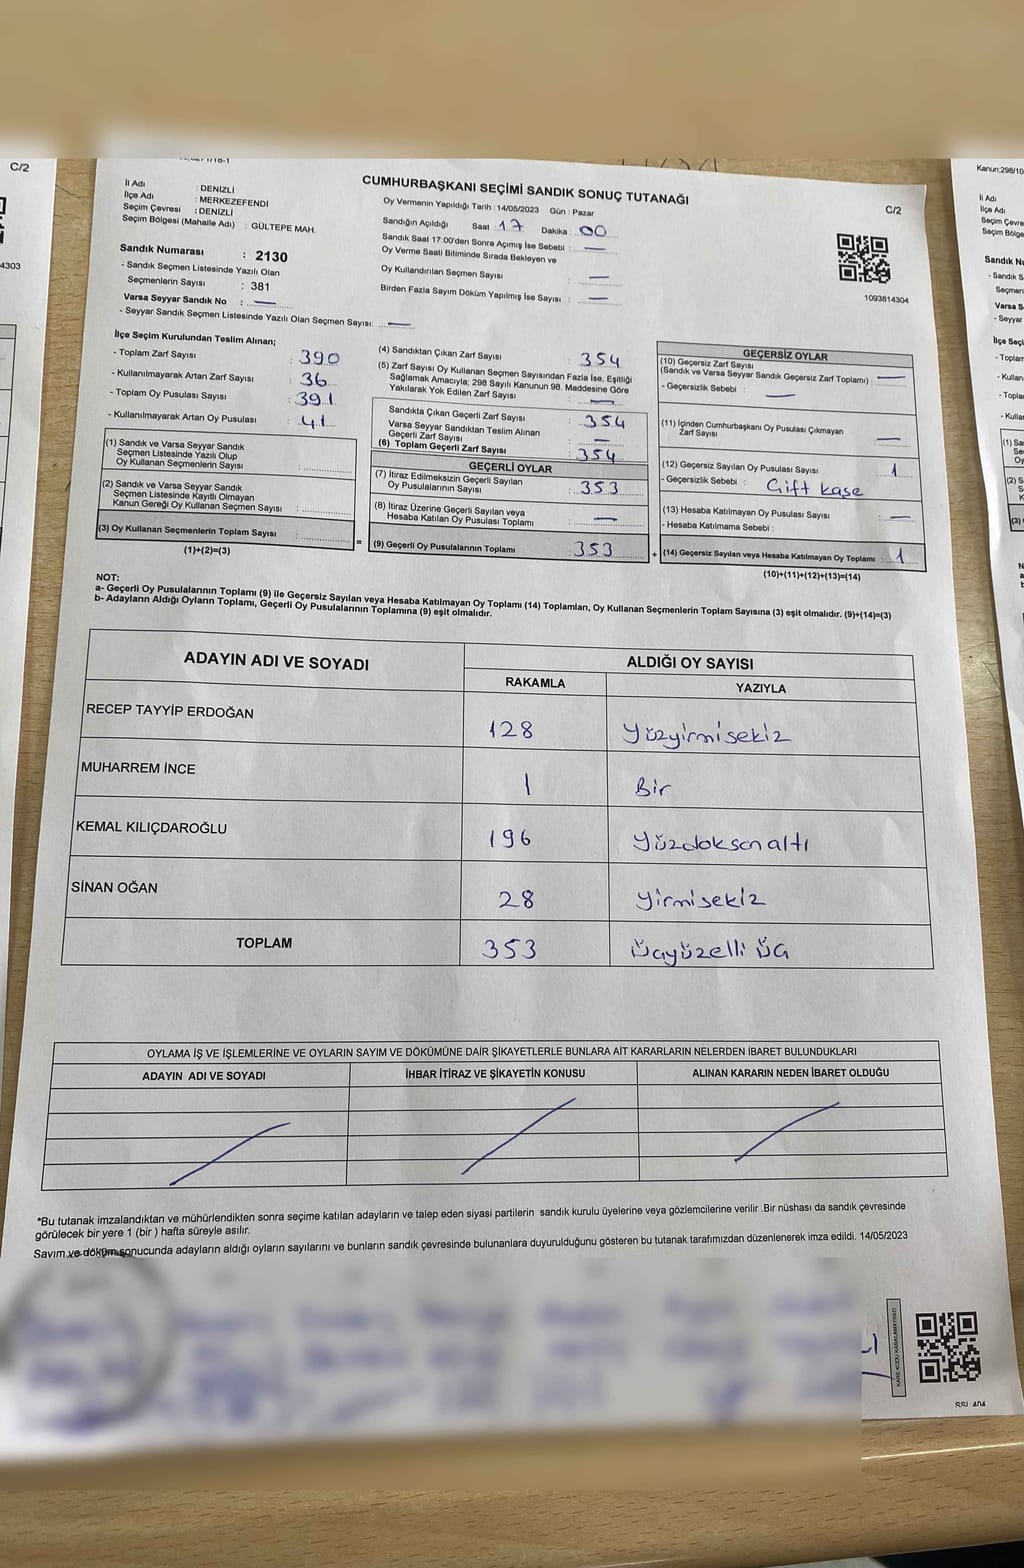 C/2
CUMHURBAŞKANI SEÇİMİ SANDIK SONUÇ TUTANAĞI
C/2
İl Adı : DENİZLİ
İlçe Adı : MERKEZEFENDİ
Seçim Çevresi : DENİZLİ
Seçim Bölgesi (Mahalle Adı) : GÜLTEPE MAH.
Sandık Numarası : 2130
- Sandık Seçmen Listesinde Yazılı Olan
Seçmenlerin Sayısı : 381
Varsa Seyyar Sandık No : —
- Seyyar Sandık Seçmen Listesinde Yazılı Olan Seçmen Sayısı: —
Oy Vermenin Yapıldığı Tarih : 14/05/2023 Gün : Pazar
Sandığın Açıldığı Saat 17 Dakika : 00
Sandık Saat 17:00'den Sonra Açımış İse Sebebi : —
Oy Verme Saati Bitiminde Sırada Bekleyen ve
Oy Kullandırılan Seçmen Sayısı —
Birden Fazla Sayım Döküm Yapılmış İse Sayısı : —
1093814304
İlçe Seçim Kurulundan Teslim Alınan;
- Toplam Zarf Sayısı : 390
- Kullanılmayarak Artan Zarf Sayısı : 36
- Toplam Oy Pusulası Sayısı : 391
- Kullanılmayarak Artan Oy Pusulası : 41
(1) Sandık ve Varsa Seyyar Sandık
Seçmen Listesinde Yazılı Olup
Oy Kullanan Seçmenlerin Sayısı :
(2) Sandık ve Varsa Seyyar Sandık
Seçmen Listesinde Kayıtlı Olmayan
Kanun Gereği Oy Kullanan Seçmen Sayısı :
(3) Oy Kullanan Seçmenlerin Toplam Sayısı :
(1)+(2)=(3)
=
(4) Sandıktan Çıkan Zarf Sayısı : 354
(5) Zarf Sayısı Oy Kullanan Seçmen Sayısından Fazla İse, Eşitliği
Sağlamak Amacıyla; 298 Sayılı Kanunun 98. Maddesine Göre
Yakılarak Yok Edilen Zarf Sayısı : —
Sandıkta Çıkan Geçerli Zarf Sayısı : 354
Varsa Seyyar Sandıktan Teslim Alınan
Geçerli Zarf Sayısı : —
(6) Toplam Geçerli Zarf Sayısı : 354
GEÇERLİ OYLAR
(7) İtiraz Edilmeksizin Geçerli Sayılan
Oy Pusulalarının Sayısı : 353
(8) İtiraz Üzerine Geçerli Sayılan veya
Hesaba Katılan Oy Pusulası Toplamı : —
(9) Geçerli Oy Pusulalarının Toplamı : 353
+
GEÇERSİZ OYLAR
(10) Geçersiz Zarf Sayısı
(Sandık ve Varsa Seyyar Sandık Geçersiz Zarf Toplamı) : —
- Geçersizlik Sebebi : —
(11) İçinden Cumhurbaşkanı Oy Pusulası Çıkmayan
Zarf Sayısı : —
(12) Geçersiz Sayılan Oy Pusulası Sayısı : 1
- Geçersizlik Sebebi : Çift kaşe
(13) Hesaba Katılmayan Oy Pusulası Sayısı : —
- Hesaba Katılmama Sebebi :
(14) Geçersiz Sayılan veya Hesaba Katılmayan Oy Toplamı : 1
(10)+(11)+(12)+(13)=(14)
NOT:
a- Geçerli Oy Pusulalarının Toplamı (9) ile Geçersiz Sayılan veya Hesaba Katılmayan Oy Toplamı (14) Toplamları, Oy Kullanan Seçmenlerin Toplam Sayısına (3) eşit olmalıdır. (9)+(14)=(3)
b- Adayların Aldığı Oyların Toplamı, Geçerli Oy Pusulalarının Toplamına (9) eşit olmalıdır.
ADAYIN ADI VE SOYADI ALDIĞI OY SAYISI
RAKAMLA YAZIYLA
RECEP TAYYİP ERDOĞAN 128 Yüzyirmisekiz
MUHARREM İNCE 1 Bir
KEMAL KILIÇDAROĞLU 196 Yüzdoksanaltı
SİNAN OĞAN 28 Yirmisekiz
TOPLAM 353 Üçyüzelli Üç
OYLAMA İŞ VE İŞLEMLERİNE VE OYLARIN SAYIM VE DÖKÜMÜNE DAİR ŞİKAYETLERLE BUNLARA AİT KARARLARIN NELERDEN İBARET BULUNDUKLARI
ADAYIN ADI VE SOYADI İHBAR İTİRAZ VE ŞİKAYETİN KONUSU ALINAN KARARIN NEDEN İBARET OLDUĞU
*Bu tutanak imzalandıktan ve mühürlendikten sonra seçime katılan adayların ve talep eden siyasi partilerin sandık kurulu üyelerine veya gözlemcilerine verilir .Bir nüshası da sandık çevresinde
görülecek bir yere 1 (bir ) hafta süreyle asılır.
Sayım ve döküm sonucunda adayların aldığı oyların sayılarını ve bunların sandık çevresinde bulunanlara duyurulduğunu gösteren bu tutanak tarafımızdan düzenlenerek imza edildi. 14/05/2023
KARE KODU KARALAMAYINIZ!